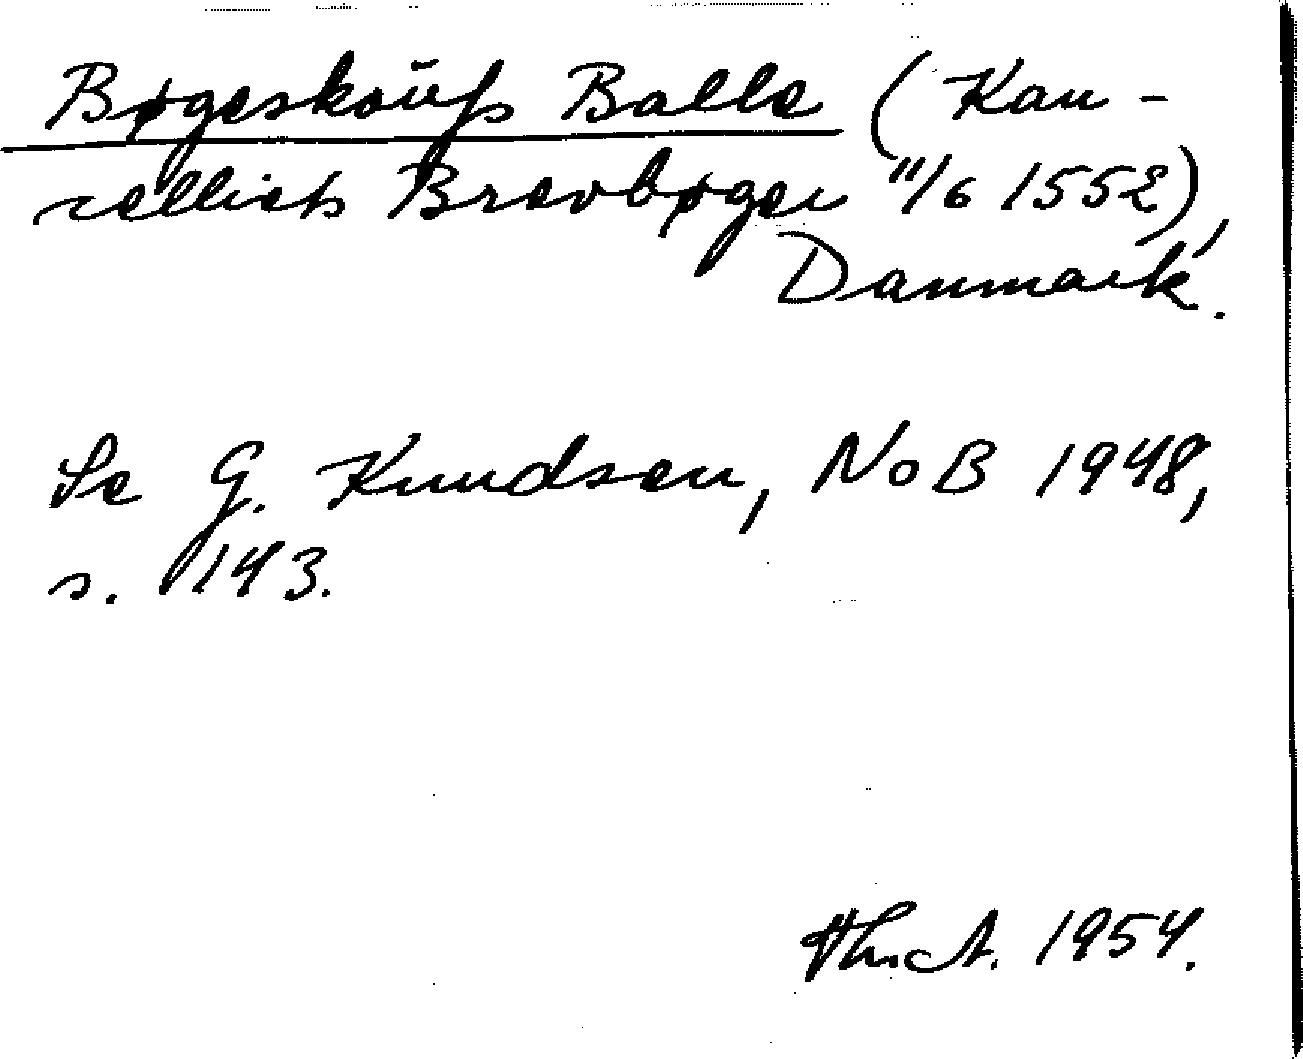 Bøgeskoufs Balle (Kan-
celliets Brevbøger 11/6 1552),
Danmark.
Se G. Knudsen, NoB 1948,
s. 143.
1954.